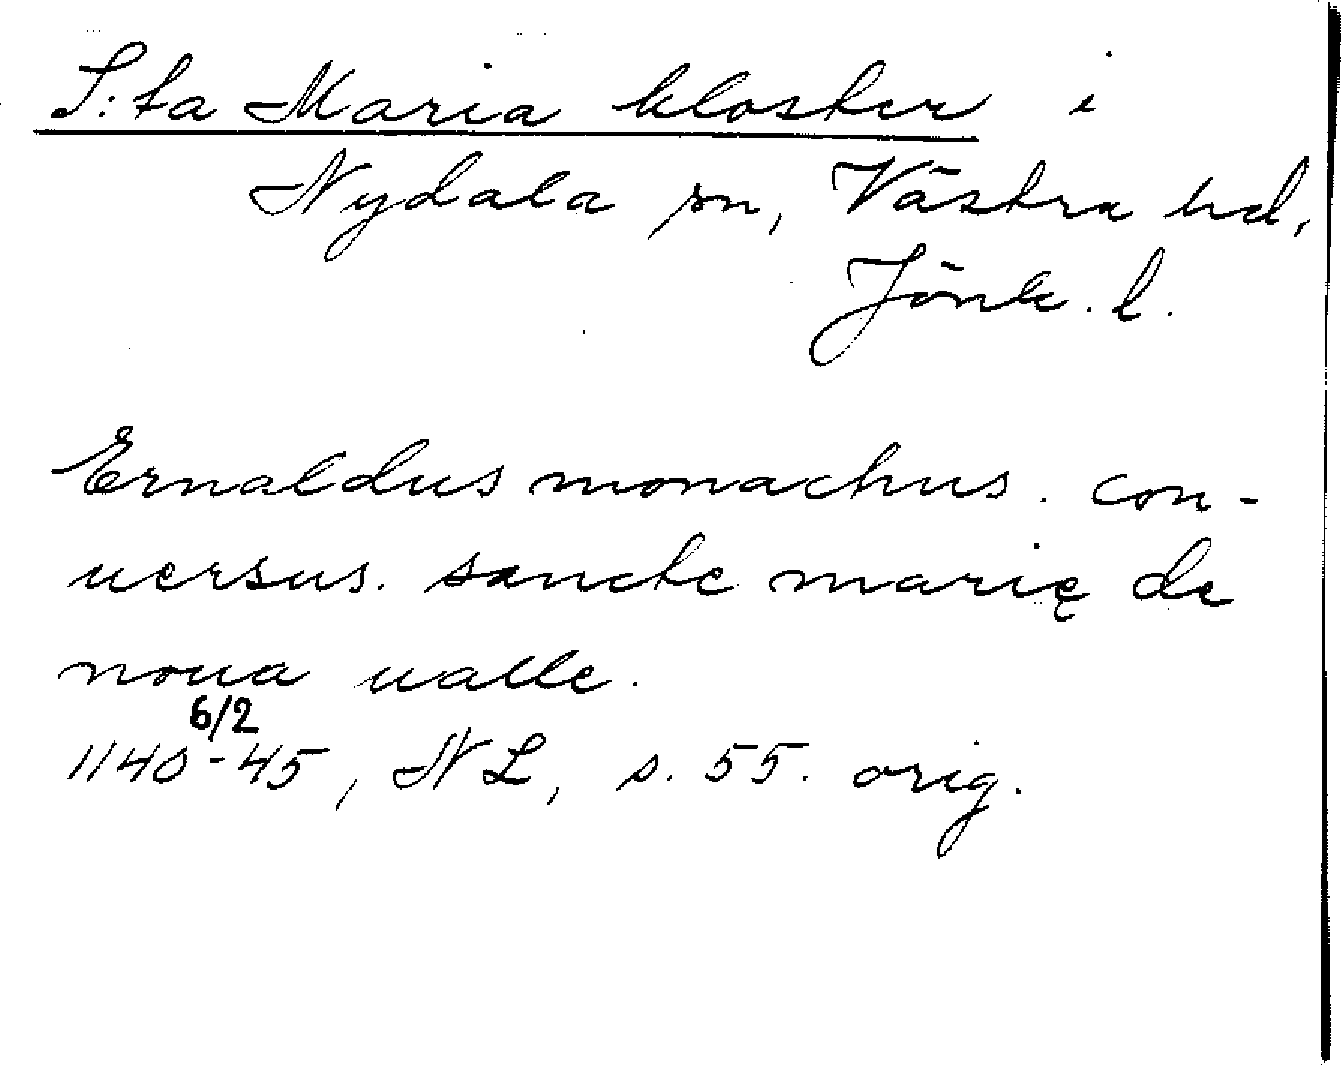 S:ta Maria kloster i
Nydala sn, Västra hd,
Jönk. l.
Ernaldus monachus. con-
uersus. sancte marię de
noua ualle.
6/2
1140-45, NL, s. 55. orig.